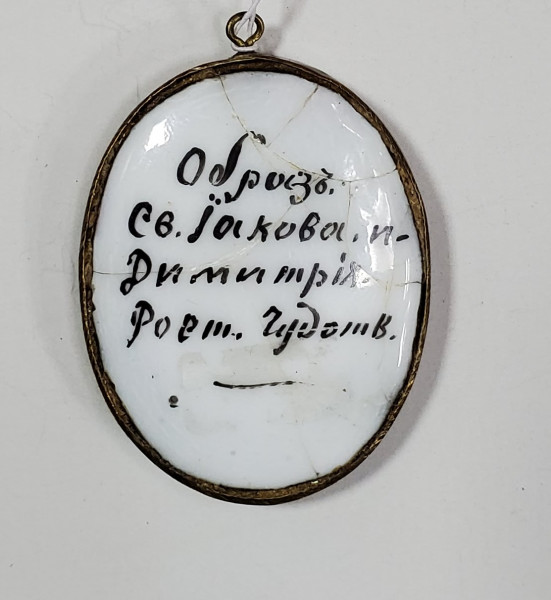 Образъ.
Св. Їакова. и-
Димитрія.
Рост. Чудотв.